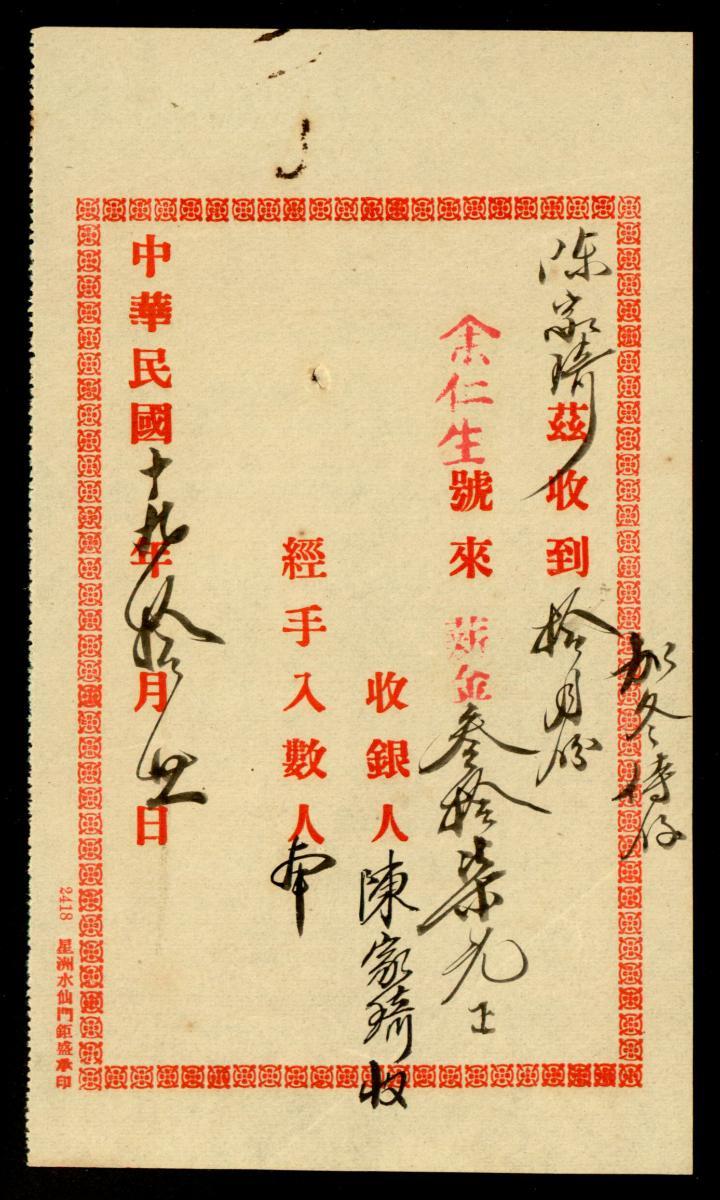 加冬
陈家琦茲收到拾月份
余仁生號來薪金叁拾柒元正
收銀人陳家琦收
經手入數人本
中華民國十九年拾月日
2418 星洲水仙門鉅盛承印